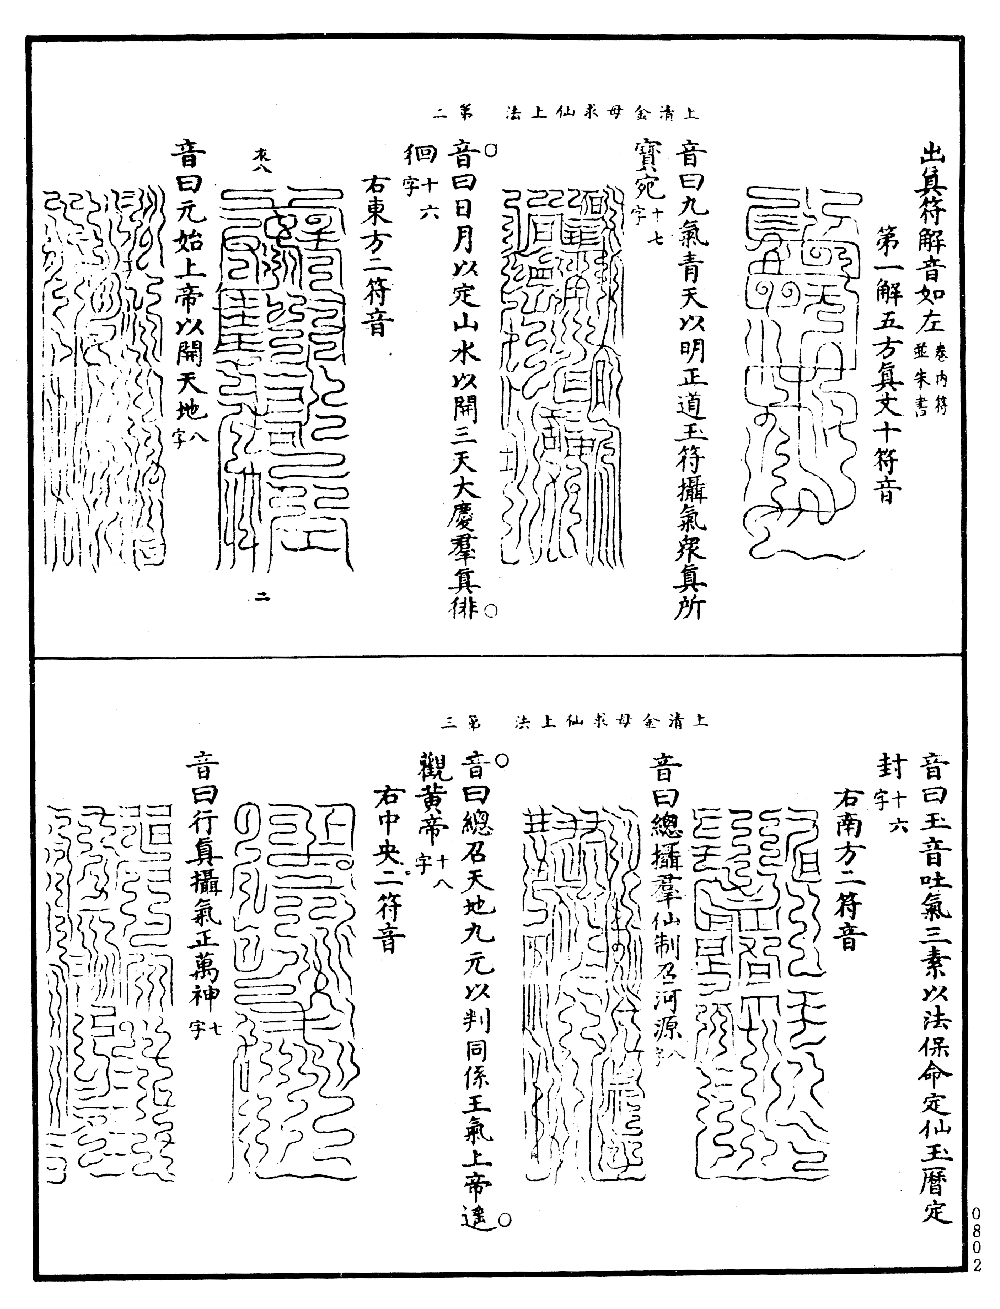 上清金母求仙上法　第二
出真符解音如左卷内符並朱書
第一解五方真文十符音
音曰九氣青天以明正道玉符攝氣衆真所
寶宛十七字
音曰日月以定山水以開三天大慶羣真徘
徊十六字
右東方二符音
衣八
二
音曰元始上帝以開天地八字
上清金母求仙上法　第三
音曰玉音吐氣三素以法保命定仙玉曆定
封十六字
右南方二符音
音曰總攝羣仙制召河源八字
音曰總召天地九元以判同係王氣上帝遙
觀黄帝十八字
右中央二符音
音曰行真攝氣正萬神七字
0802